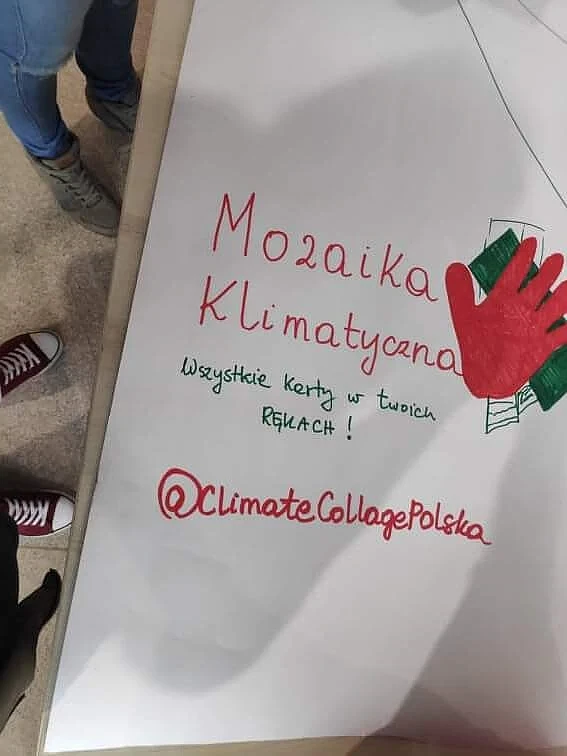 Mozaika
Klimatyczna
Wszystkie karty w twoich
RĘKACH!
@ClimateCollagePolska